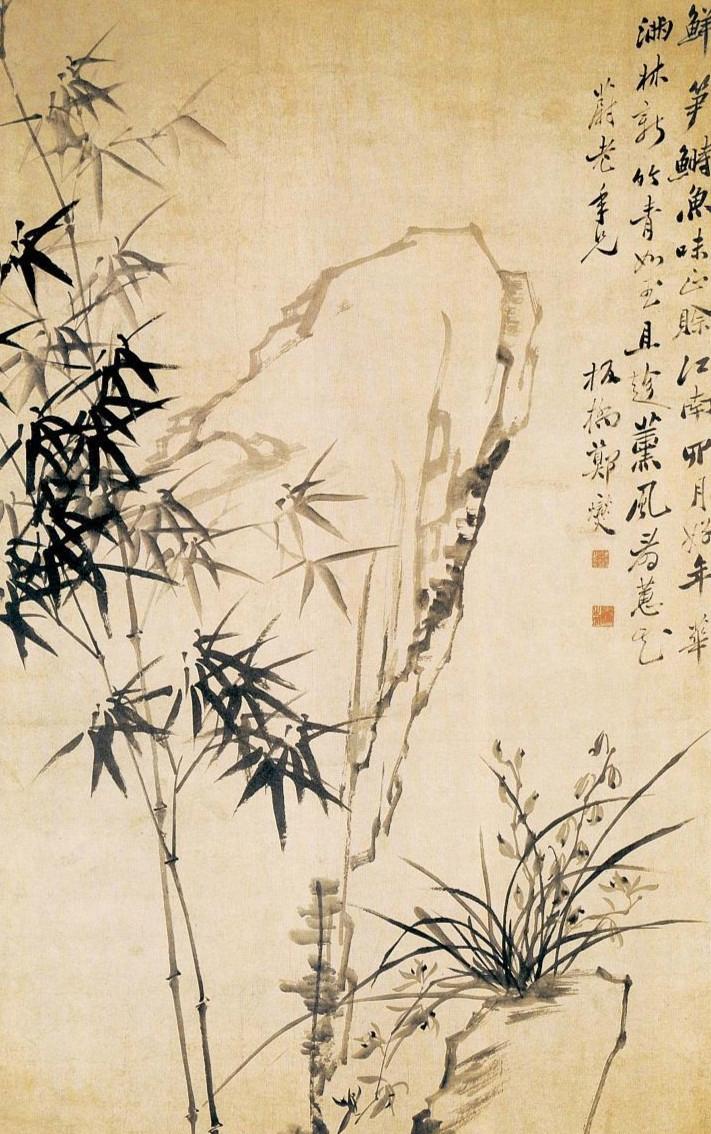 鮮笋鰣魚味正賒江南四月好年華
滿林新竹青如玉且趁薰風看蕙花
蔚老年兄
板橋鄭燮